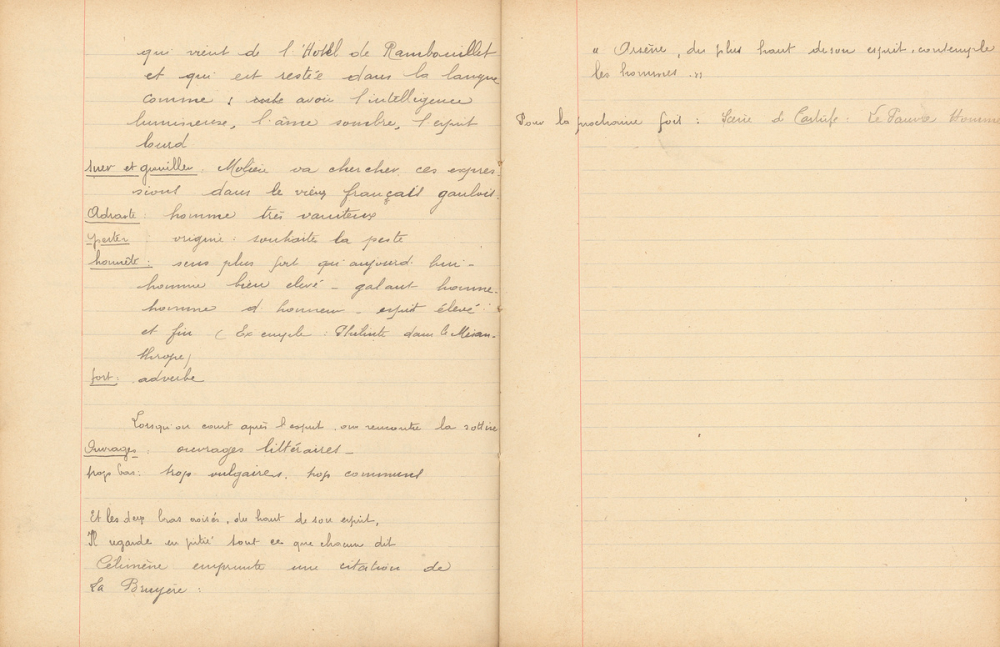 qui vient de l'Hôtel de Rambouillet
et qui est restée dans la langue
comme : avoir l'intelligence
lumineuse, l'âme sombre, l'esprit
lourd
suer et gouiller. Molière va chercher ces expres-
sions dans le vieux français gaulois.
Adraste : homme très vaniteux
pester origine : souhaiter la peste
honnête : sens plus fort qu'aujourd'hui -
homme bien élevé - galant homme.
homme d'honneur - esprit élevé
et fin (Exemple : Philinte dans le Misan-
thrope)
fort : adverbe
Lorsqu'on court après l'esprit, on rencontre la sottise
Ouvrages : ouvrages littéraires -
trop bas : trop vulgaires, trop communs
Et les deux bras croisés, du haut de son esprit,
Il regarde en pitié tout ce que chacun dit
Célimène emprunte une citation de
La Bruyère :
« Arsène, du plus haut de son esprit, contemple
les hommes. »
Pour la prochaine fois : Scène de Tartufe : Le Pauvre Homme